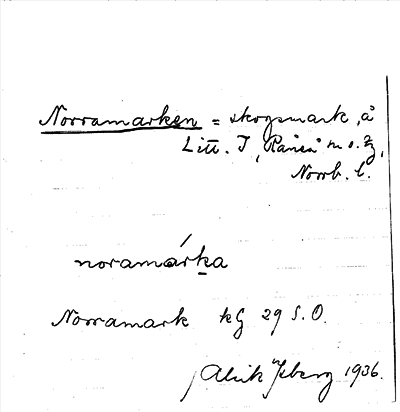 Norramarken = skogsmark, å
Litt. I, Råneå m o.
Norrb. l.
noramárka
Norramark kg 29 S.O.
Alrik 1936.